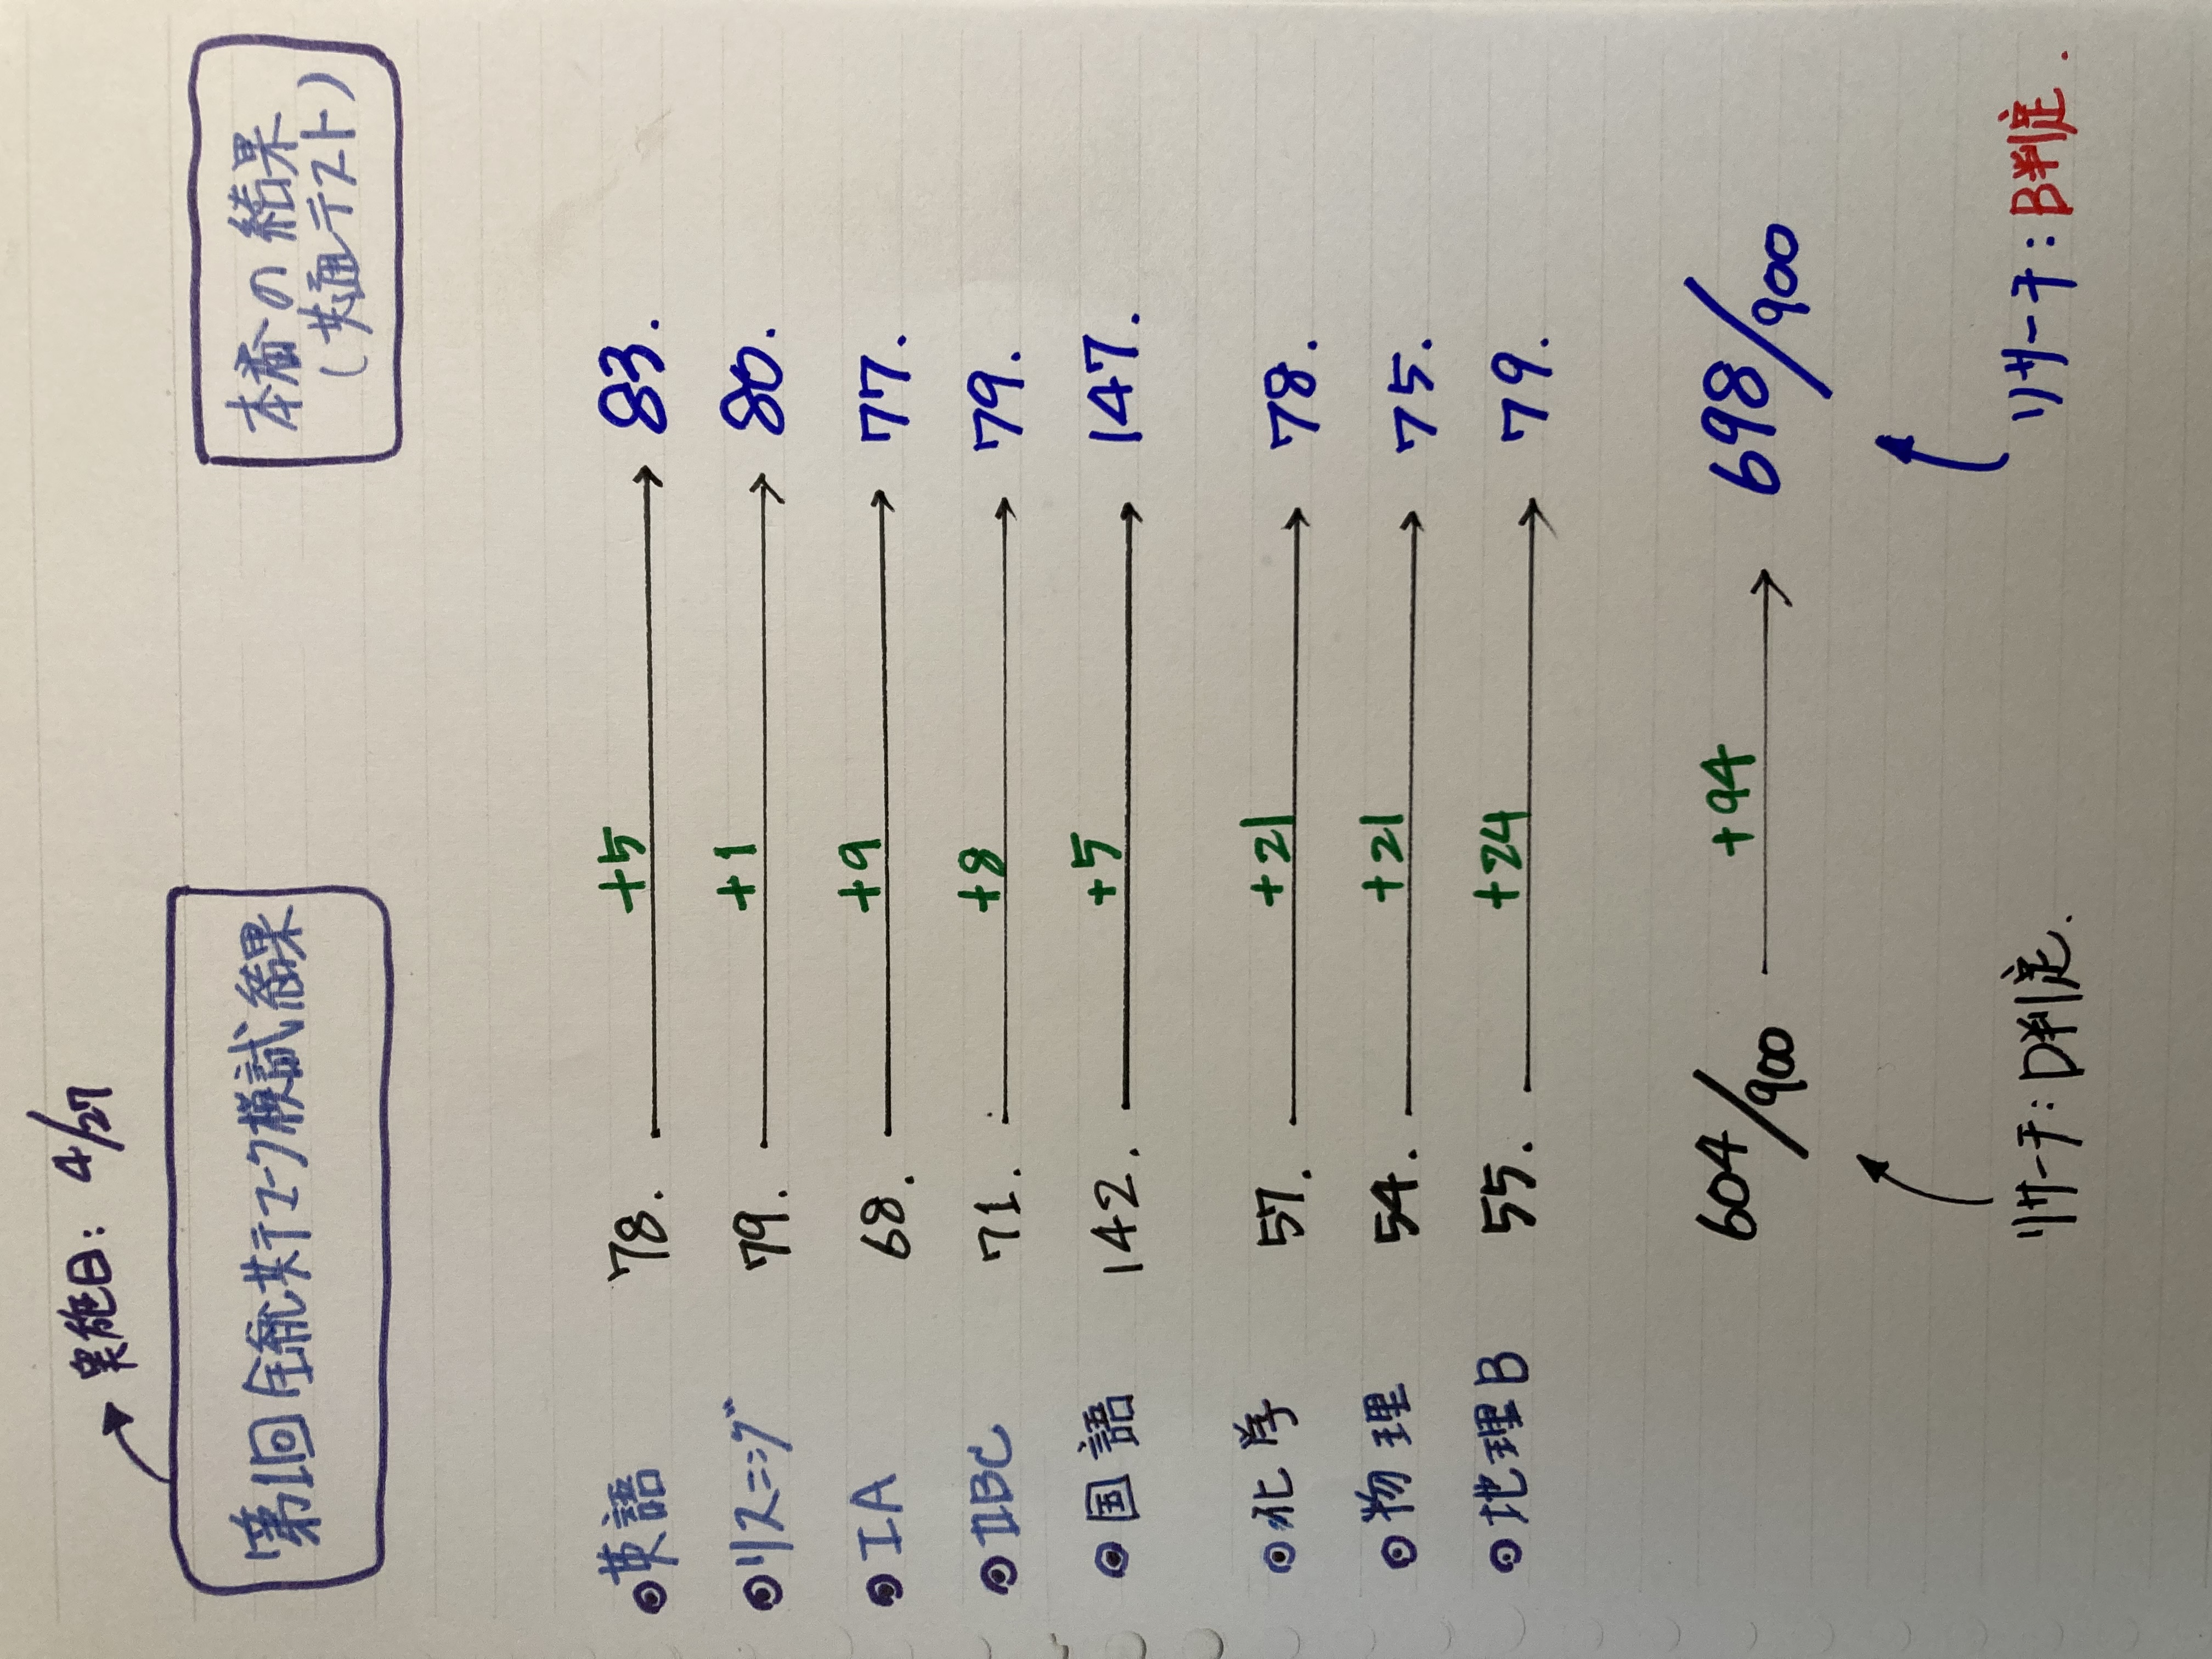 実施日: 4/27
第1回全統共テマーク模試結果
本番の結果
(共通テスト)
◎英語 78. +5 → 83.
◎リスニング 79. +1 → 80.
◎IA 68. +9 → 77.
◎ⅡBC 71. +8 → 79.
◎国語 142. +5 → 147.
◎化学 57. +21 → 78.
◎物理 54. +21 → 75.
◎地理B 55. +24 → 79.
604/900 +94 → 698/900
リサーチ:D判定.
リサーチ:B判定.